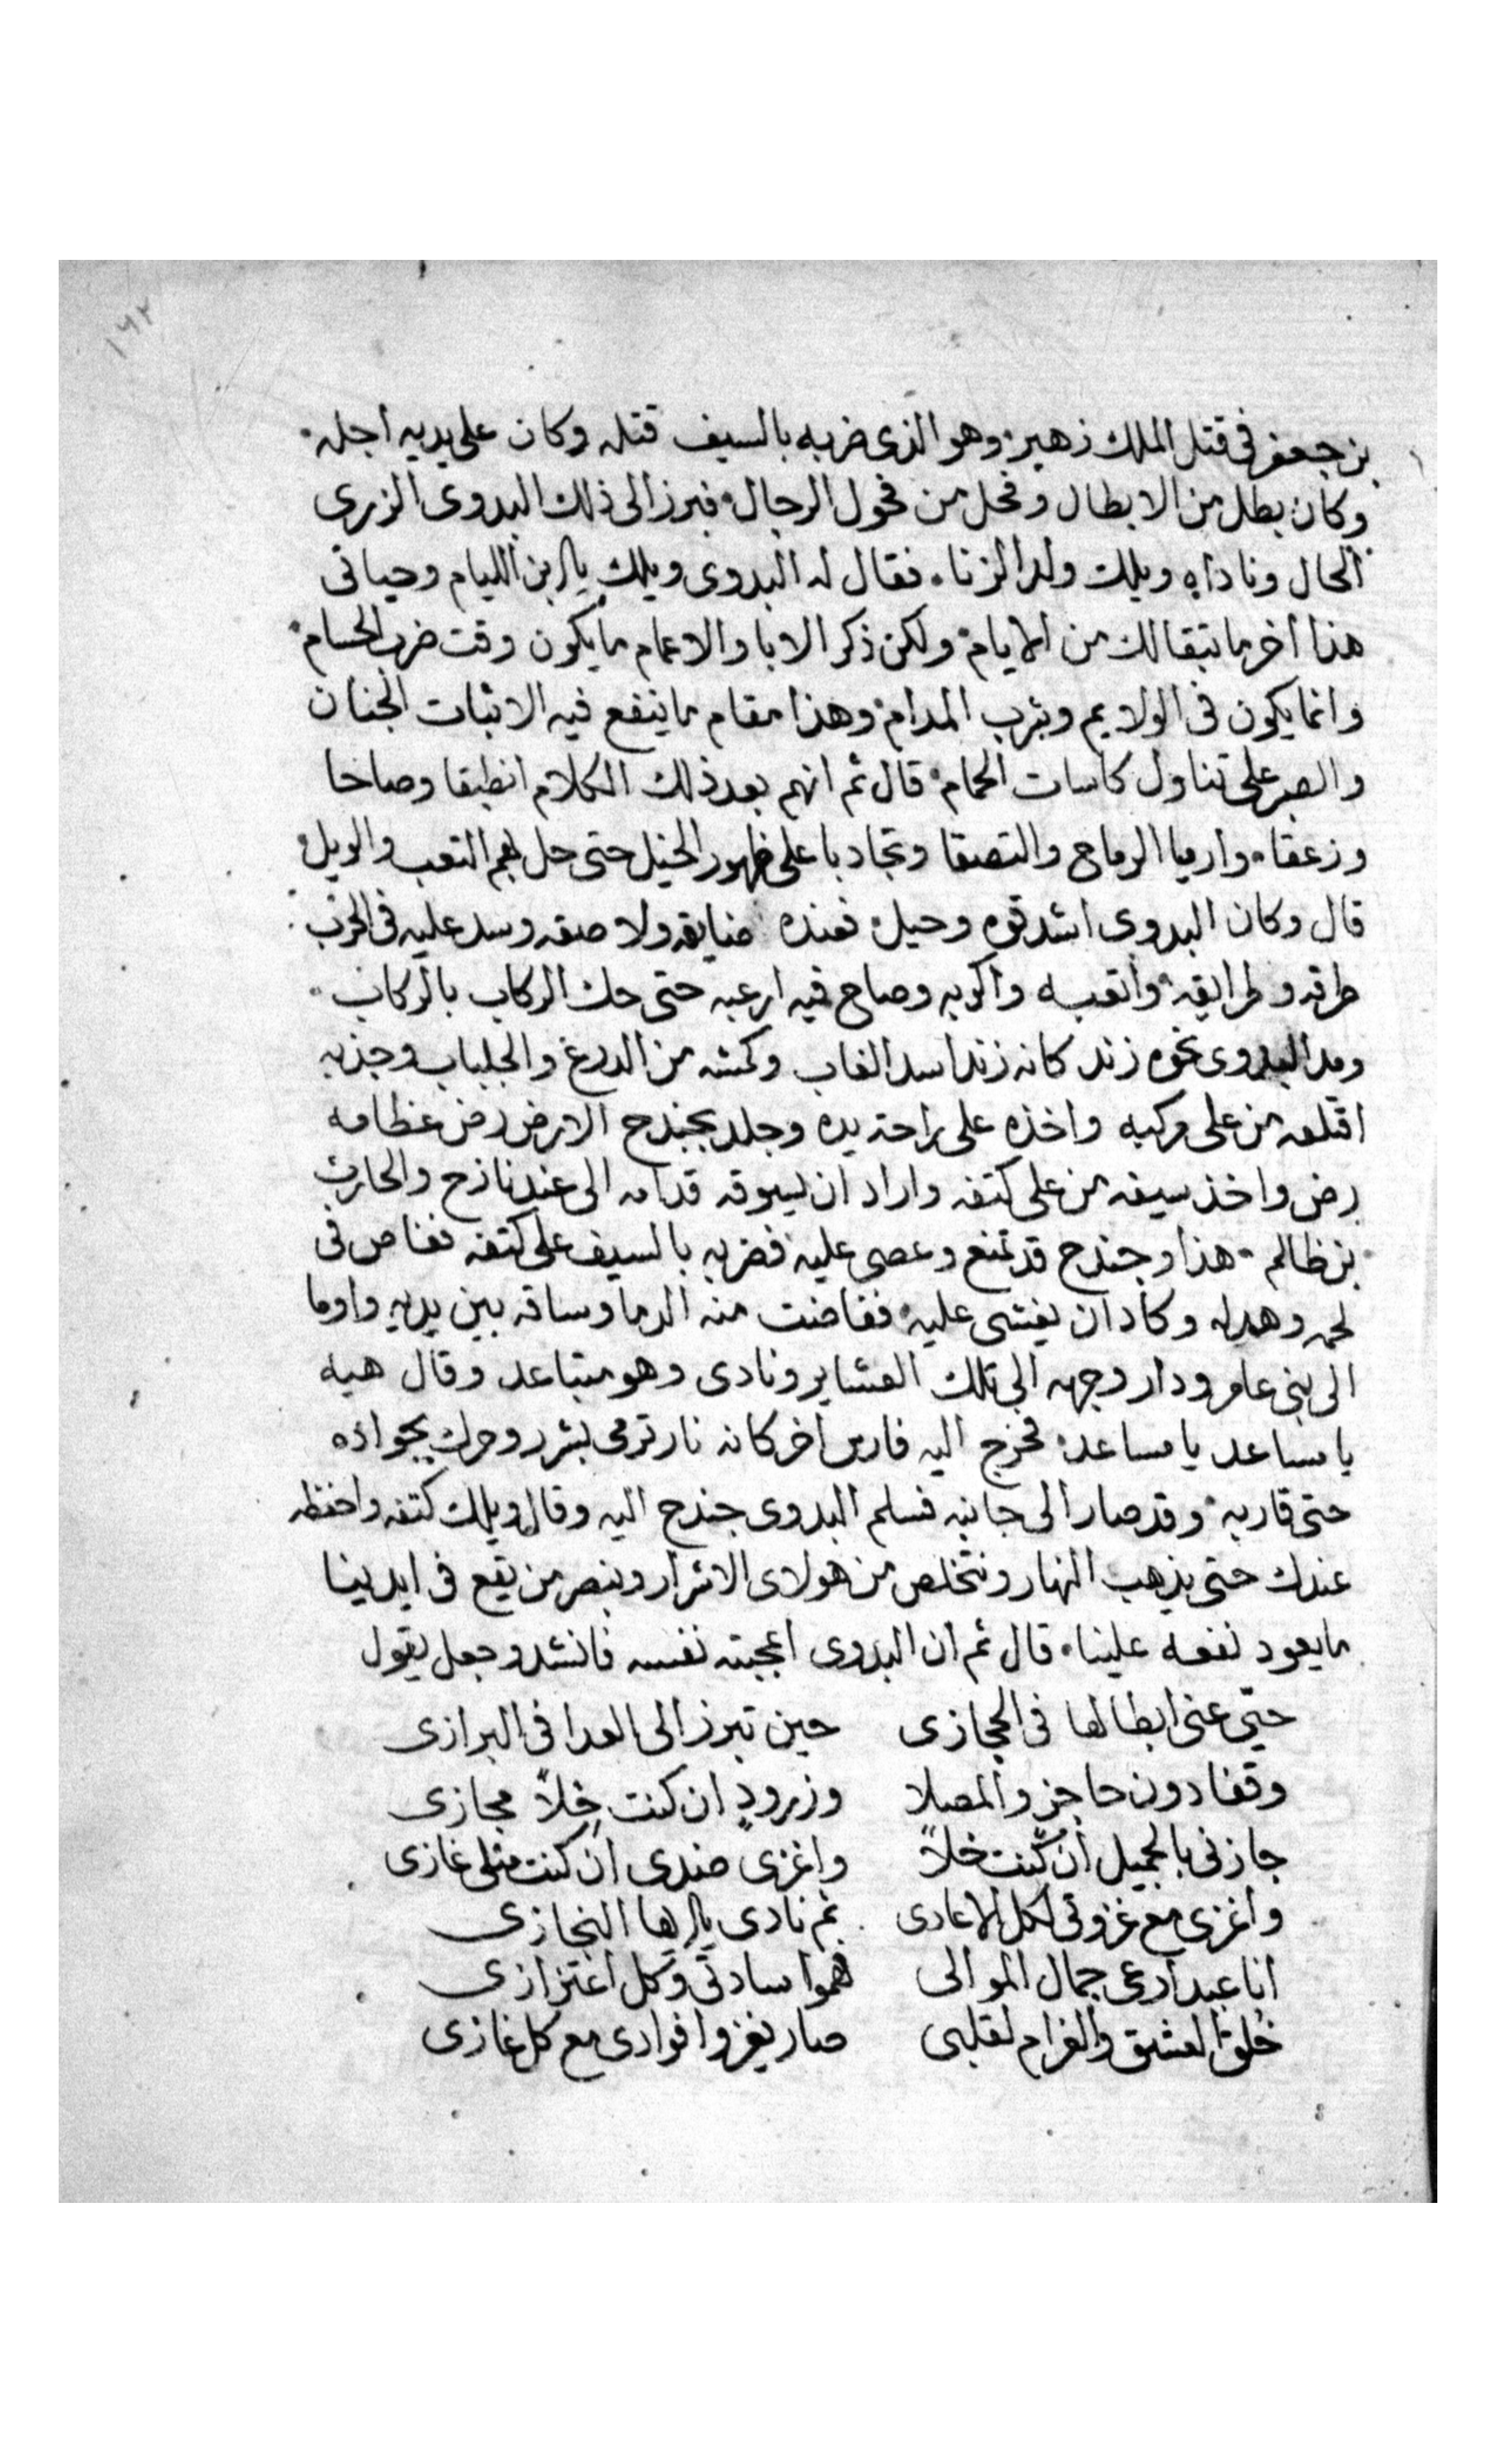 ١٦٢
بن جعفر فى قتل الملك زهير وهو الذى ضربه بالسيف قتله وكان على يديه اجله
وكان بطل من الابطال وفحل من فحول الرجال فبرز الى ذلك البدوى الزرى
الحال وناداه ويلك ولد الزنا فقال له البدوى ويلك يا ابن الليام وحياتى
هذا اخر ما تبقالك من الايام ولكن ذكر الابا والاعمام ما يكون وقت ضرب الحسام
وانما يكون فى الولايم وشرب المدام وهذا مقام ما ينفع فيه الا ثبات الجنان
والصبر على تناول كاسات الحمام قال ثم انهم بعد ذلك الكلام انطبقا وصاحا
وزعقا وارميا الرماح والتصقا وتجادبا على ظهور الخيل حتى حل بهم التعب والويل
قال وكان البدوى اشد قوه وحيل فعنده ضايقه ولاصقه وسد عليه فى الحرب
طرقه وطرايقه واتعبه واكربه وصاح فيه ارعبه حتى حك الركاب بالركاب
ومد البدوى نحوه زند كانه زند اسد الغاب وكمشه من الدرع والجلباب وجذبه
اقتلعه من على مركبه واخذه على راحة يده وجلد بجندح الارض رض عظامه
رض واخذ سيفه من على كتفه واراد ان يسوقه قدامه الى عند نازح والحارث
بن ظالم هذا وجندح قد تمنع وعصى عليه فضربه بالسيف على كتفه فغاص فى
لحمه وهدله وكاد ان يغشى عليه ففاضت منه الدما وساقه بين يديه واوما
الى بنى عامر ودار وجهه الى تلك العشاير ونادى وهو متباعد وقال هيه
يا مساعد يا مساعد فخرج اليه فارس اخر كانه نار ترمى بشرر وحرك بجواده
حتى قاربه وقد صار الى جانبه فسلم البدوى جندح اليه وقال ويلك كتفه واحفظه
عندك حتى يذهب النهار ونتخلص من هولاى الاشرار وينصر من يقع فى ايدينا
ما يعود نفعه علينا قال ثم ان البدوى اعجبته نفسه فانشد وجعل يقول
حيّى عنى ابطالها فى الحجازى حين تبرز الى العدا فى البرازى
وقفا دون حاجز والمصلا وزرودٍ ان كنت خلاً مجازى
جازنى بالجميل ان كنت خلاً واغزى ضدى ان كنت مثلى غازى
واغزى مع غزوتى لكل الاعادى ثم نادى يالها النجازى
انا عبد ادعى جمال الموالى هموا سادتى وكل اعتزازى
خُلق العشق والغرام لقلبى صار يغزوا فوادى مع كل غازى